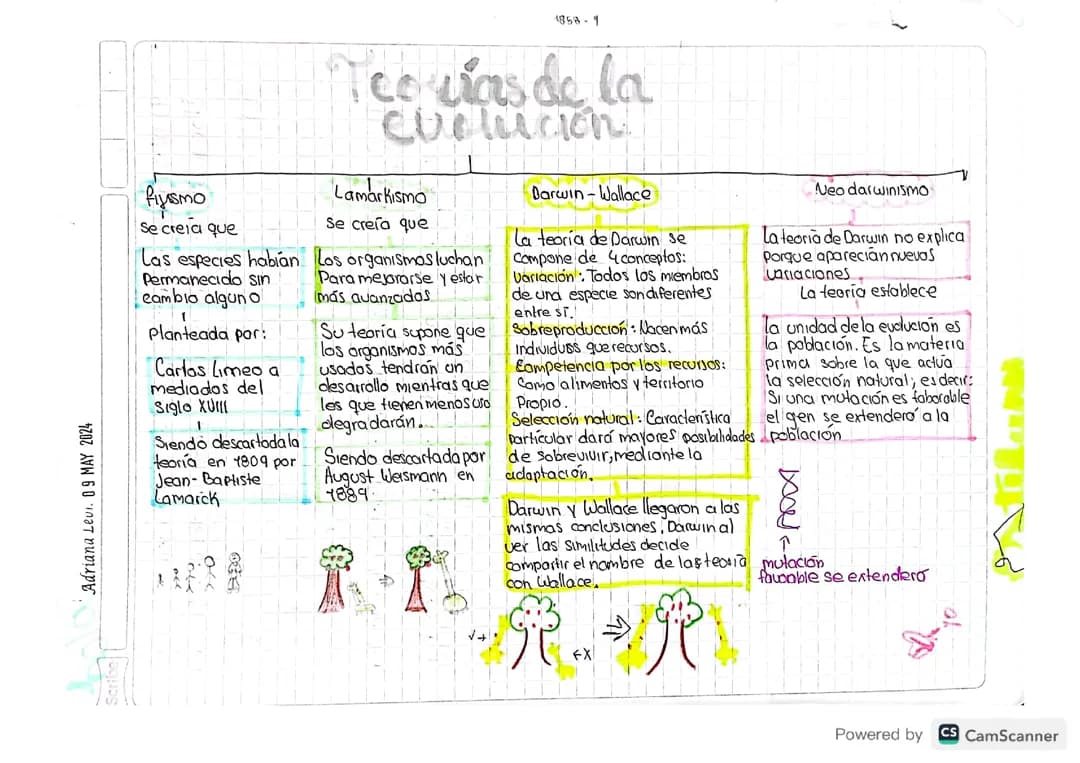 1858 - 9
Teorías de la
evolución
fijismo
se creía que
Las especies habían
Permanecido sin
cambio alguno
Planteada por:
Carlos Lineo a
mediados del
Siglo XVIII
Siendo descartada la
teoría en 1809 por
Jean-Baptiste
Lamarck
Lamarkismo
se creía que
Los organismos luchan
Para mejorarse y estar
más avanzados
Su teoría supone que
los organismos más
usados tendrán un
desarollo mientras que
les que tienen menos uso
degradarán.
Siendo descartada por
August Weismann en
1889.
Darwin - Wallace
La teoría de Darwin se
compone de 4 conceptos:
Variación: Todos los miembros
de una especie son diferentes
entre sí.
Sobreproducción: Nacen más
individuos que recursos.
Competencia por los recursos:
Como alimentos y territorio
Propio.
Selección natural: Característica
particular dará mayores posibilidades
de sobrevivir, mediante la
adaptación.
Darwin y Wallace llegaron a las
mismas conclusiones, Darwin al
ver las similitudes decide
compartir el nombre de las teoría
con Wallace.
V
X
Neodarwinismo
La teoría de Darwin no explica
porque aparecían nuevas
variaciones
La teoría establece
La unidad de la evolución es
la población. Es la materia
prima sobre la que actúa
la selección natural, es decir:
Si una mutación es faborable
el gen se extenderá a la
población
mutación
favorable se extenderá
Adriana Levi. 09 MAY 2024
Scribe
Powered by CS CamScanner